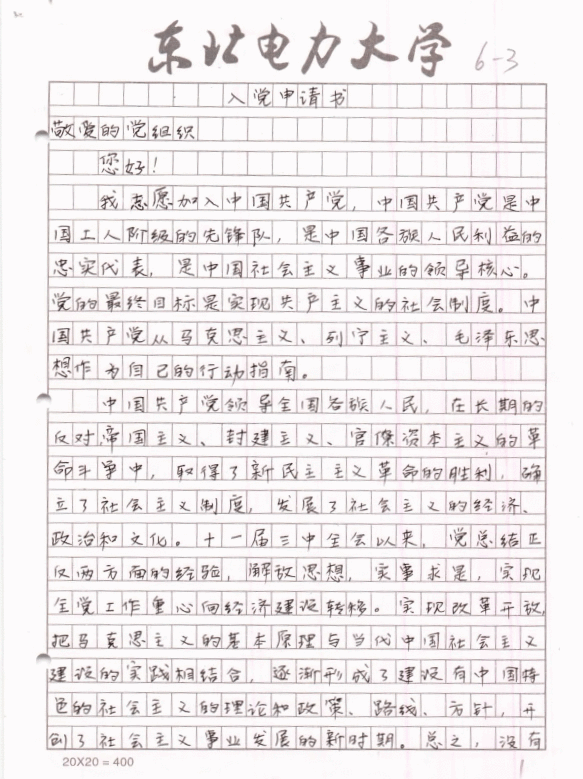 东北电力大学 6-3
入党申请书
敬爱的党组织
您好！
我志愿加入中国共产党，中国共产党是中
国工人阶级的先锋队，是中国各族人民利益的
忠实代表，是中国社会主义事业的领导核心。
党的最终目标是实现共产主义的社会制度。中
国共产党从马克思主义、列宁主义、毛泽东思
想作为自己的行动指南。
中国共产党领导全国各族人民，在长期的
反对帝国主义、封建主义、官僚资本主义的革
命斗争中，取得了新民主主义革命的胜利，确
立了社会主义制度，发展了社会主义的经济、
政治和文化。十一届三中全会以来，党总结正
反两方面的经验，解放思想，实事求是，实现
全党工作重心向经济建设转移。实现改革开放，
把马克思主义的基本原理与当代中国社会主义
建设的实践相结合，逐渐形成了建设有中国特
色的社会主义的理论和政策、路线、方针，开
创了社会主义事业发展的新时期。总之，没有
20X20=400 1